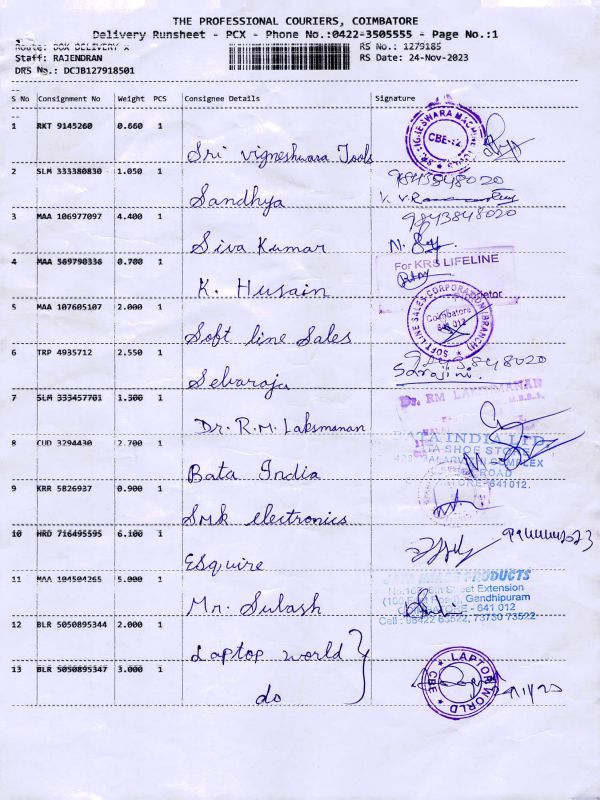 THE PROFESSIONAL COURIERS, COIMBATORE
Delivery Runsheet - PCX - Phone No.:0422-3505555 - Page No.:1
Route: BOX DELIVERY X
RS No.: 1279185
Staff: RAJENDRAN
RS Date: 24-Nov-2023
DRS No.: DCJB127918501
S No Consignment No Weight PCS Consignee Details Signature
1 RKT 9145260 0.660 1
Sri vigneshwara Tools
CBE-12.
2 SLM 333380830 1.050 1
9843848020
Sandhya
3 MAA 106977097 4.400 1
9843848020
Siva Kumar
4 MAA 569790336 0.700 1
For KRS LIFELINE
K. Husain
5 MAA 107605107 2.000 1
SOFT LINE SALES CORPORATION (BRANCH)
Coimbatore
Soft line Sales
6 TRP 4935712 2.550 1
Selvaraja
Sarojini.
7 SLM 333457701 1.300 1
Dr. RM LAKSHMANAN
M.B.B.S.
Dr. R.M. Laksmanan
8 CUD 3294430 2.700 1
BATA INDIA LTD.
BATA SHOE STORE
COMPLEX
ROAD
Bata India
COIMBATORE-641012.
9 KRR 5826937 0.900 1
SMK electronics
10 HRD 716495595 6.100 1
Esquire
11 MAA 104504265 5.000 1
PRODUCTS
Street Extension
Gandhipuram
- 641 012
Cell : 98422 63522, 73730 73522
Mr. Sulash
12 BLR 5050895344 2.000 1
Laptop world
LAPTOP WORLD
CBE
13 BLR 5050895347 3.000 1
do